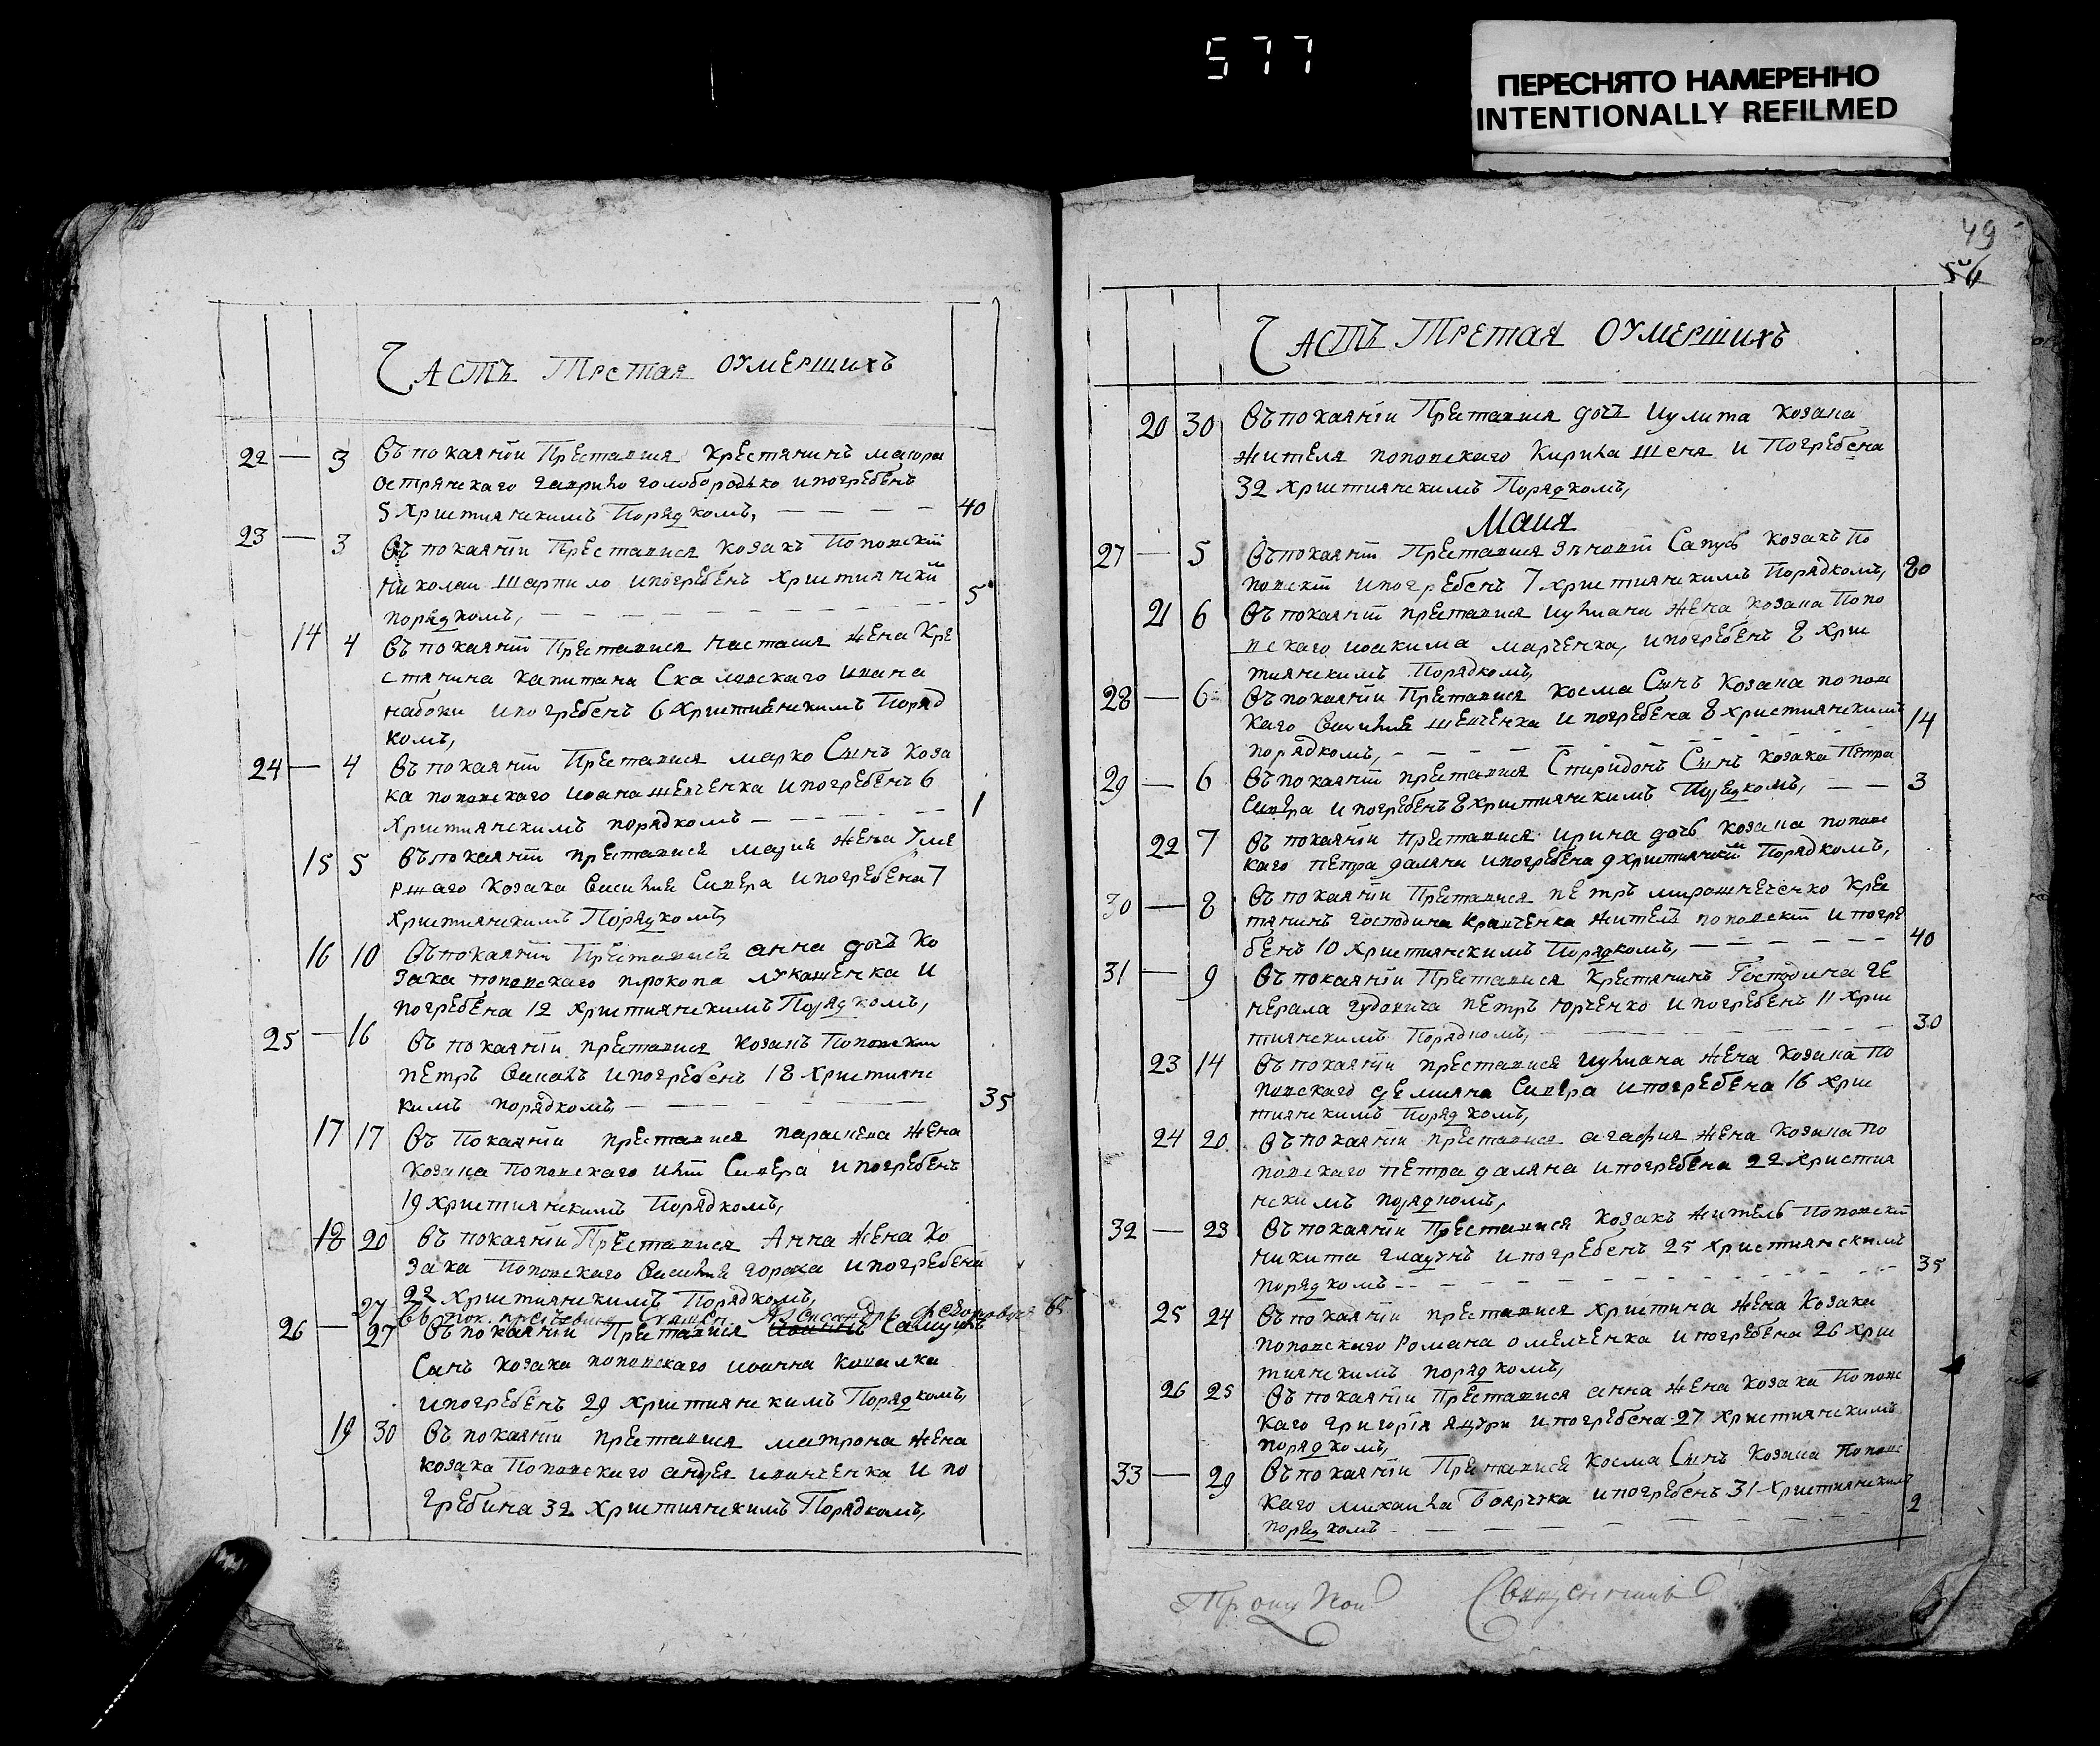 577
ПЕРЕСНЯТО НАМЕРЕННО
INTENTIONALLY REFILMED
ЧАСТЬ Третая ОУМЕРШИХЪ
22 — 3 Въ покаянїи Преставися Крестянинъ маиора
острянскаго гаврило голобородко и погребенъ
5 християнскимъ Порядкомъ, — — — — 40
23 — 3 Въ покаянїи Преставися козакъ Поповскїй
николаи шарпило и погребенъ християнски
порядкомъ, — — — — 5
14 4 Въ покаянїи Преставися настасия жена Кре
стянина капитана Скаловскаго ивана
набоки и погребенъ 6 християнскимъ Поряд
комъ,
24 — 4 Въ покаянїи Преставися марко Сынъ Коза
ка поповскаго иоана шевченка и погребенъ 6
християнскимъ порядкомъ — — — 1
15 5 Въ покаянїи преставися мария жена Уме
ршаго козака василия Сивера и погребена 7
християнскимъ Порядкомъ,
16 10 Въ покаянїи Преставися анна дочь Ко
зака поповскаго прокопа лукашенка и
погребена 12 християнскимъ Порядкомъ,
25 — 16 Въ покаянїи преставися козакъ Поповски
петръ и погребенъ 18 християнс
кимъ порядкомъ, — — — 35
17 17 Въ Покаянїи преставися параскева жена
козака Поповскаго илїи Сивера и погребенъ
19 християнскимъ Порядкомъ,
18 20 Въ покаянїи Преставися Анна жена Ко
зака Поповскаго василия гороха и погребена
22 християнскимъ Порядкомъ,
27 Въ пок. преставися Священ. Александръ Федоровичъ 65
26 — 27 Въ покаянїи Преставися иоаннъ Самуилъ
Сынъ козака поповскаго иоанна ковалка
и погребенъ 29 християнскимъ Порядкомъ,
19 30 Въ покаянїи преставися матрона жена
козака Поповскаго андрея иванченка и по
гребина 32 християнскимъ Порядкомъ,
49
ЧАСТЬ Третая ОУМЕРШИХЪ
20 30 Въ покаянїи Преставися дочь Иулита козака
жителя поповскаго Кирила шеня и Погребена
32 християнскимъ Порядкомъ,
Маия
27 — 5 Въ покаянїи Преставися зѣновїй Сапусь козакъ По
повскїй и погребенъ 7 християнскимъ Порядкомъ, 80
21 6 Въ покаянїи преставися иулиана жена козака Попо
вскаго иоакима марченка, и погребенъ 8 хрис
тиянскимъ Порядкомъ,
28 — 6 Въ покаянїи Преставися косма Сынъ козака попов
каго василия шевченка и погребена 8 християнскимъ 14
порядкомъ, — — — —
29 — 6 Въ покаянїи преставися Спиридонъ Сынъ козака Петра
Сивера и погребенъ 8 християнскимъ Порядкомъ, — — 3
22 7 Въ покаянїи Преставися ирина дочь козака поповс
каго петра даляна и погребена 9 християнскимъ Порядкомъ,
30 — 8 Въ покаянїи Преставися петръ мирошнеченко Крес
тянинъ господина Кравченка житель поповскїй и погре
бенъ 10 християнскимъ Порядкомъ, — — — 40
31 — 9 Въ покаянїи Преставися Крестянинъ Господина ге
нерала гудовича петръ юрченко и погребенъ 11 хрис
тиянскимъ Порядкомъ, — — — 30
23 14 Въ покаянїи преставися иулиана жена козака по
повскаго демияна Сивера и погребена 16 хрис
тиянскимъ Порядкомъ,
24 20 Въ покаянїи преставися агафия жена козака по
повскаго петра даляна и погребена 22 христия
нскимъ порядкомъ,
32 — 23 Въ покаянїи Преставися козакъ житель Поповскїй
никита глащунъ и погребенъ 25 християнскимъ
порядкомъ — — — — 35
25 24 Въ покаянїи преставися христина жена козака
поповскаго Романа омелченка и погребена 26 хрис
тиянскимъ порядкомъ,
26 25 Въ покаянїи Преставися анна жена козака Поповс
каго григорїя яцури и погребена 27 християнскимъ
порядкомъ,
33 — 29 Въ покаянїи Преставися косма Сынъ козака Поповс
каго михаила боярчука и погребенъ 31 християнскимъ 2
порядкомъ — — — —